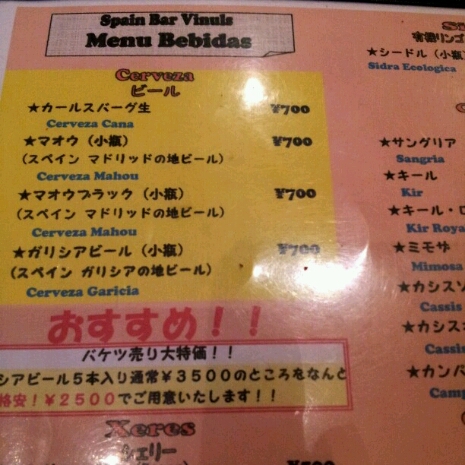 Spain Bar Vinuls
Menu Bebidas
Cerveza
ビール
★カールスバーグ生 ¥700
Cerveza Cana
★マオウ（小瓶） ¥700
（スペイン マドリッドの地ビール）
Cerveza Mahou
★マオウブラック（小瓶） ¥700
（スペイン マドリッドの地ビール）
Cerveza Mahou
★ガリシアビール（小瓶） ¥700
（スペイン ガリシアの地ビール）
Cerveza Garicia
おすすめ！！
バケツ売り大特価！！
シアビール５本入り通常￥３５００のところをなんと
格安！￥２５００でご用意いたします！！
Xeres
シェリー
¥500
リンゴ
★シードル（小瓶
Sidra Ecologica
★サングリア
Sangria
★キール
Kir
★キール・ロ
Kir Roya
★ミモザ
Mimosa
★カシスソ
Cassis
★カシス
Cassis
★カンパ
Camp